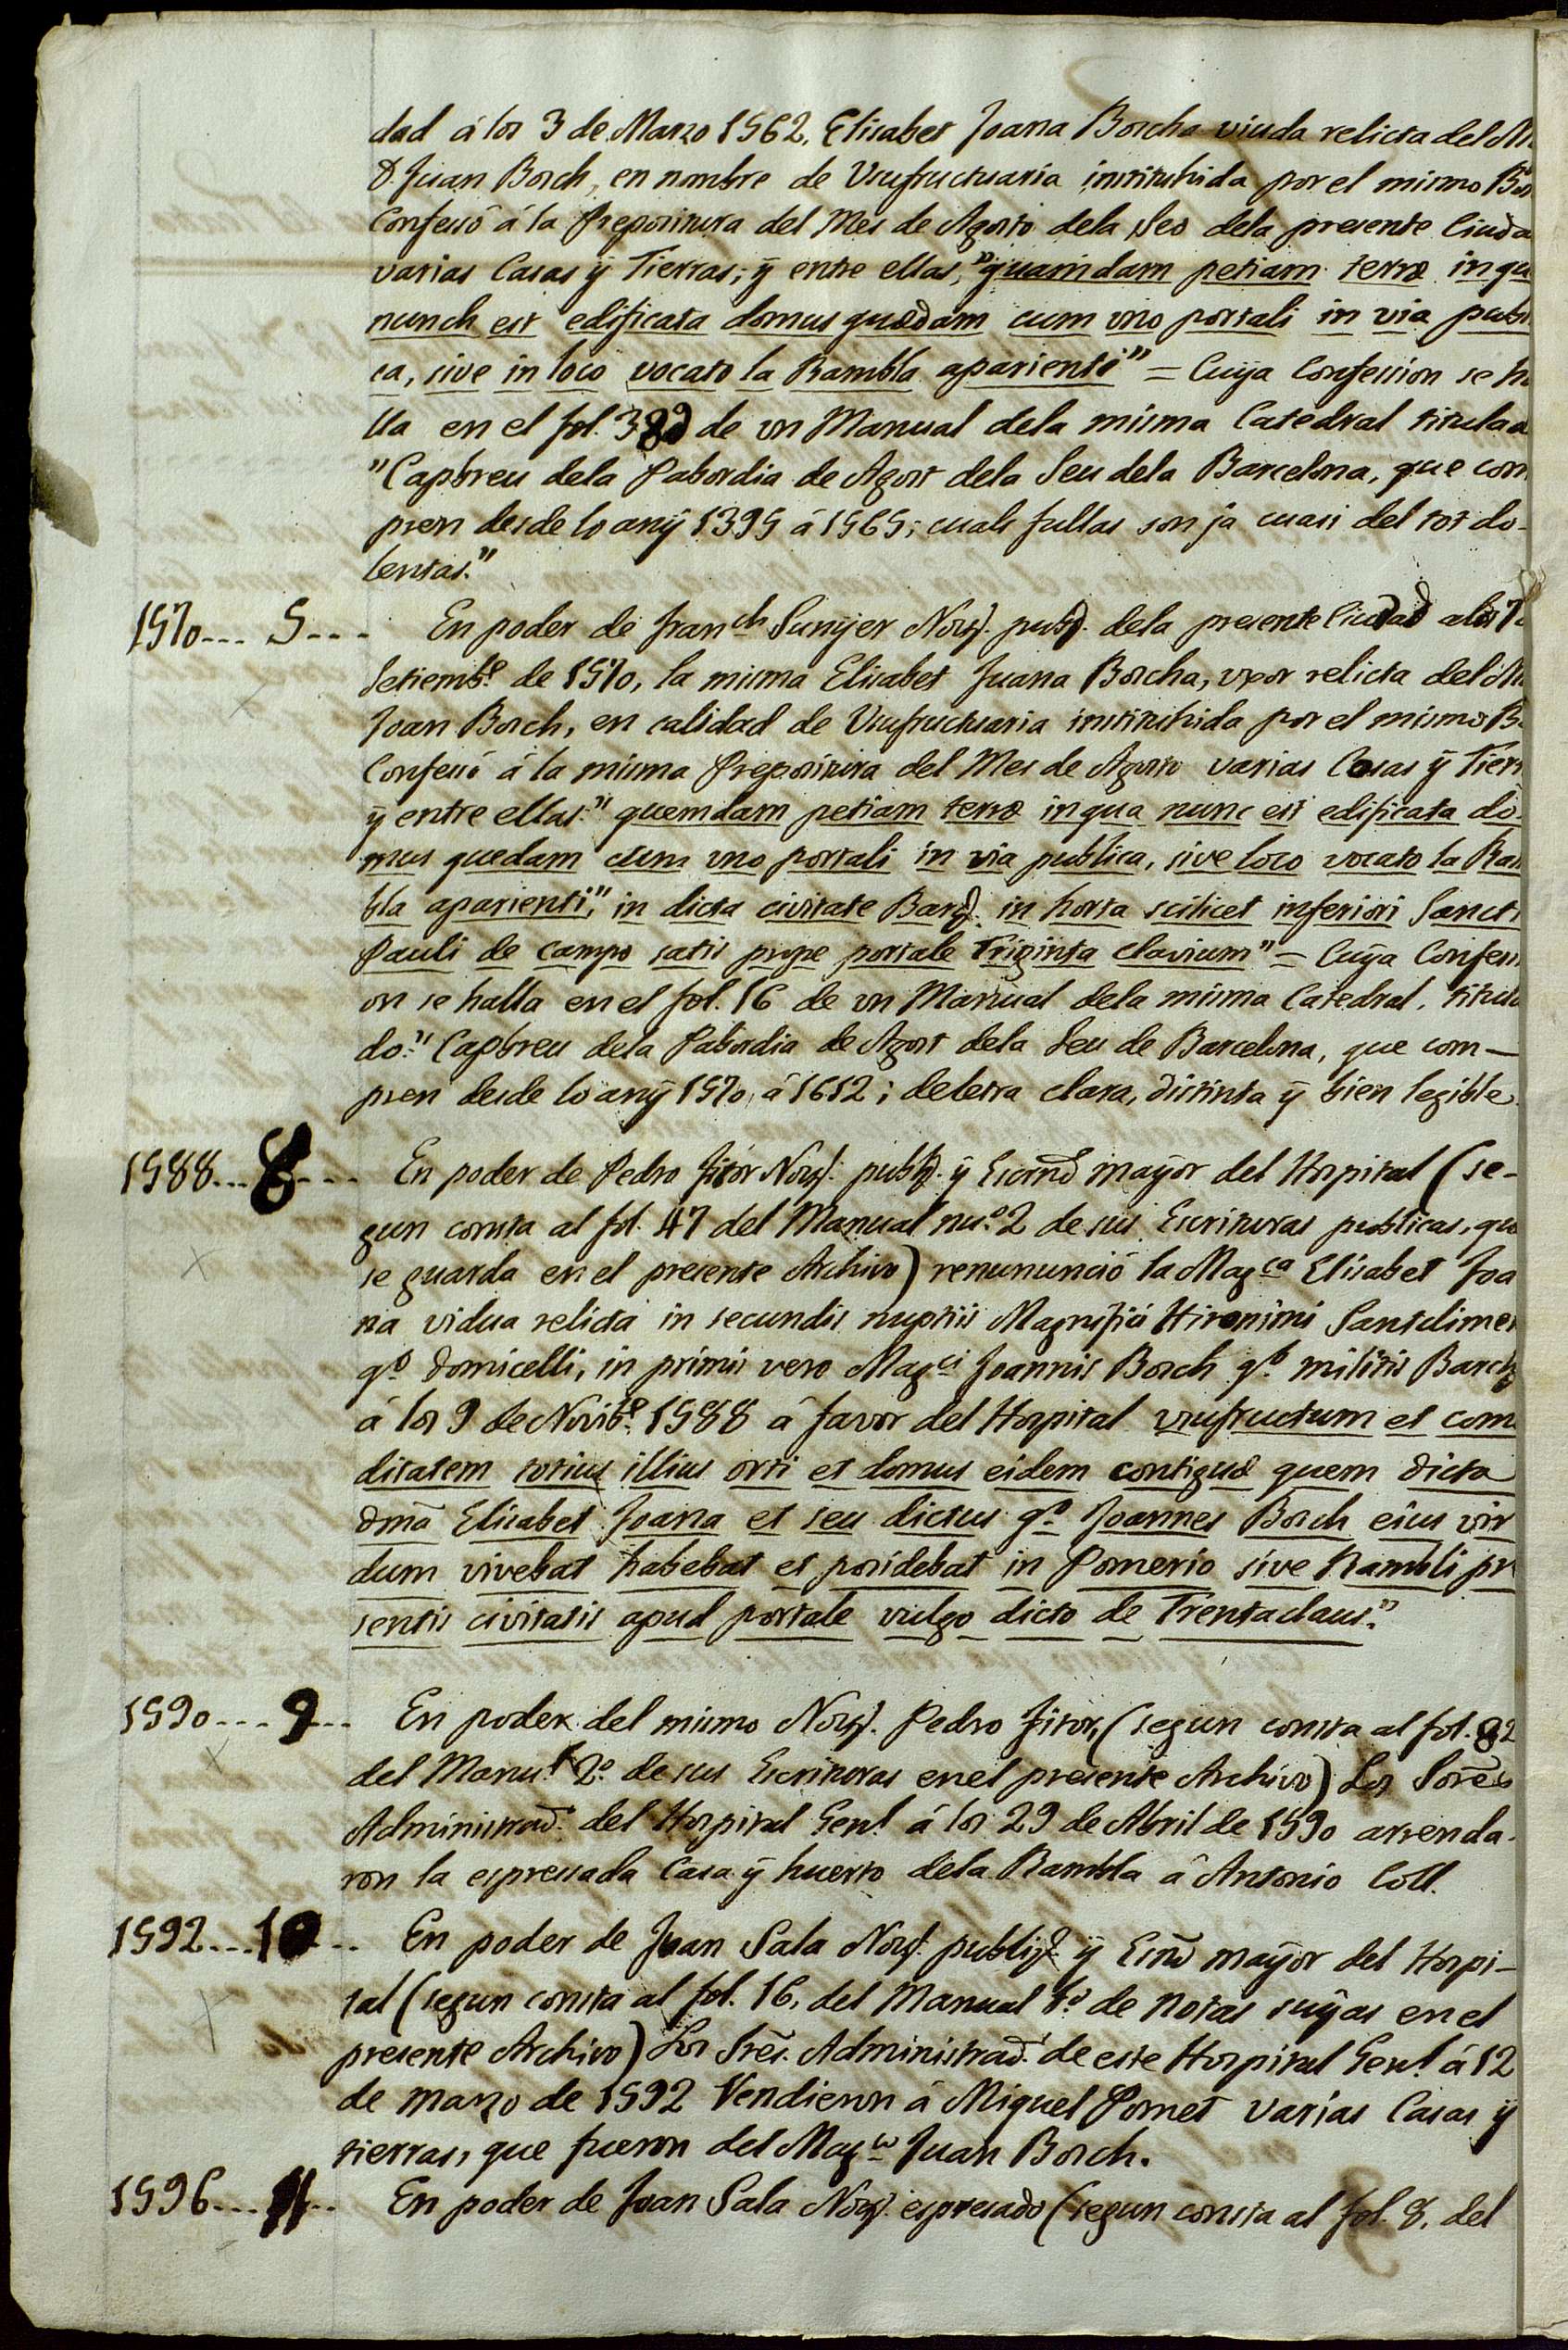 dad á los 3 de Marzo 1562. Elisabet Joana Boscha viuda relicta del M
D. Juan Bosch, en nombre de Usufructuaria instituhida por el mismo Bos
Confesó á la Prepositura del Mes de Agosto dela Seo dela presente Ciuda
varias Casas ÿ Tierras; ÿ entre ellas, "quamdam petiam terræ in qu
nunch est edificata domus quædam cum vno portali in via publi
ca, sive in loco vocato la Rambla aparienti" = Cuÿa Confession se ha
lla en el fol. de vn Manual dela misma Catedral titulad
"Capbreu dela Pabordia de Agost dela Seu dela Barcelona, que com
pren desde lo anÿ 1395 á 1565; cuals fullas son ja cuasi del tot do-
lentas."
1570--- 5--- En poder de Franch Sunÿer Noty. puby. dela presente Ciudad alos 7
Setiembe. de 1570, la misma Elisabet Juana Boscha, vxor relicta del M
Joan Bosch, en calidad de Vsufructuaria instituhida por el mismo B
Confesó á la misma Prepositura del Mes de Agosto varias Casas ÿ Tierr
ÿ entre ellas: "quemdam petiam terræ in qua nunc est edificata do-
mus quedam cum vno portali in via publica, sive loco vocato la Ram
bla aparienti", in dicta civitate Barq. in horta scilicet inferiori Sancti
Pauli de Campo satis prope portale Triginta clavium" = Cuÿa Confessi
on se halla en el fol. 16 de vn Manual dela misma Catedral, titula
do: "Capbreu dela Pabordia de Agost dela Seu de Barcelona, que com-
pren desde lo anÿ 1570, á 1612; de letra clara, distinta ÿ bien legible
1588--- 8--- En poder de Pedro Fitor Noty. puby. ÿ Escrño maÿor del Hospital (se-
gun consta al fol. 47 del Manual nuo. 2 de sus Escrituras publicas, que
se guarda en el presente Archivo) renununció la Magca Elisabet Joa
na vidua relicta in secundis nuptiis Magnifici Hironimi Santcliment
qo. domicelli, in primis vero Magci Joannis Bosch qo. militis Barch
á los 9 de Novibe. 1588 á favor del Hospital vsufructum et com
ditatem totius illius orti et domus eidem contiguæ quem dicta
dmã Elisabet Joana et seu dictus qo. Joannes Bosch eius vir
dum vivebat habebat et posidebat in Pomerio sive Rambli pre
sentis civitatis apud portale vulgo dicto de Trentaclaus."
1590--- 9--- En poder del mismo Noty. Pedro Fitor, (segun consta al fol. 82
del Manul. 2o. de sus Escrituras enel presente Archivo) Los Sores
Administrad. del Hospital Genl. á los 29 de Abril de 1590 arrenda-
ron la espressada Casa ÿ huerto dela Rambla á Antonio Coll.
1592---10--- En poder de Juan Sala Noty. publiy. ÿ Esño maÿor del Hospi-
tal (segun consta al fol. 16, del Manual 1o. de notas suÿas en el
presente Archivo) Los Sres. Administrad. de este Hospital Genl. á 12
de marzo de 1592 Vendieron á Miquel Pomet varias Casas ÿ
tierras, que fueron del Magco Juan Bosch.
1596---11--- En poder de Juan Sala Noty. espresado (segun consta al fol. 8. del